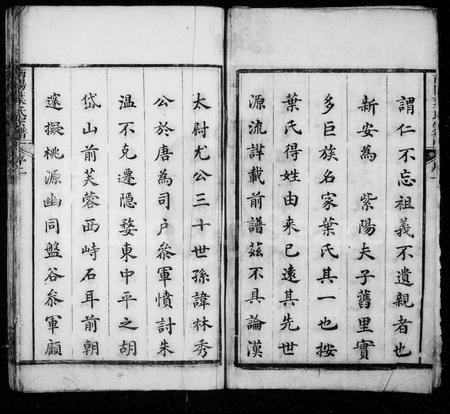 謂仁不忘祖義不遺親者也
新安為 紫陽夫子舊里實
多巨族名家葉氏其一也按
葉氏得姓由來已遠其先世
源流詳載前譜茲不具論漢
太尉尤公三十世孫諱林秀
公於唐為司戶叅軍憤討朱
温不克遷隱婺東中平之胡
岱山前芙蓉西峙石耳前朝
邃擬桃源幽同盤谷叅軍顧